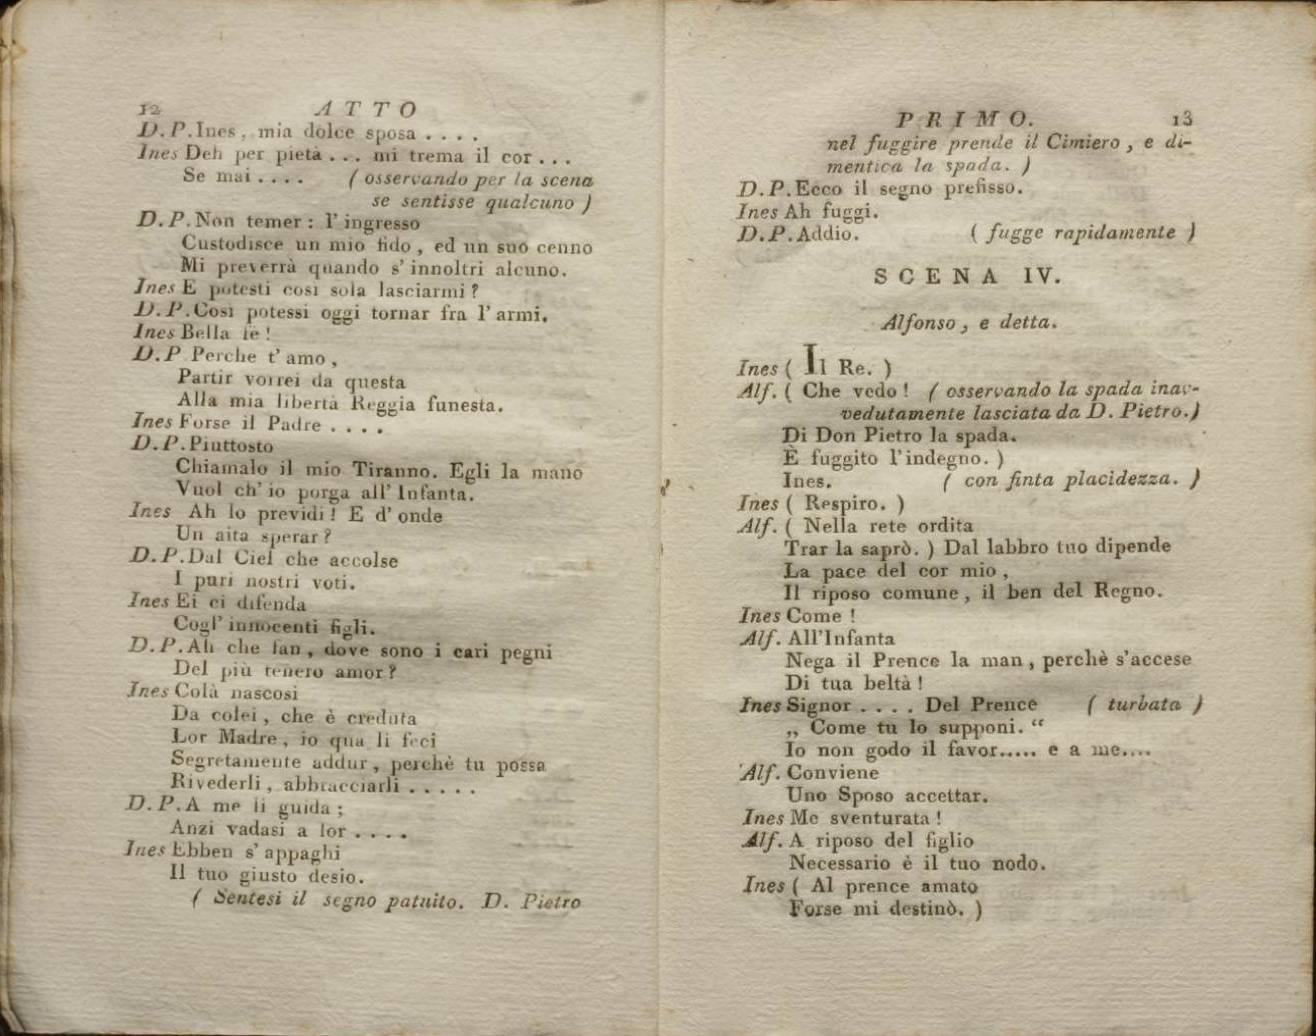 12 ATTO
D. P. Ines, mia dolce sposa . . . .
Ines Deh per pietà . . . mi trema il cor . . .
Se mai . . . . ( osservando per la scena
se sentisse qualcuno )
D. P. Non temer : l' ingresso
Custodisce un mio fido, ed un suo cenno
Mi preverrà quando s' innoltri alcuno.
Ines E potesti così sola lasciarmi ?
D. P. Così potessi oggi tornar fra l' armi.
Ines Bella fè !
D. P Perche t' amo,
Partir vorrei da questa
Alla mia libertà Reggia funesta.
Ines Forse il Padre . . . .
D. P. Piuttosto
Chiamalo il mio Tiranno. Egli la mano
Vuol ch' io porga all' Infanta.
Ines Ah lo previdi ! E d' onde
Un aita sperar ?
D. P. Dal Ciel che accolse
I puri nostri voti.
Ines Ei ci difenda
Cogl' innocenti figli.
D. P. Ah che fan, dove sono i cari pegni
Del più tenero amor ?
Ines Colà nascosi
Da colei, che è creduta
Lor Madre, io qua li feci
Segretamente addur, perchè tu possa
Rivederli, abbracciarli . . . . .
D. P. A me li guida ;
Anzi vadasi a lor . . . .
Ines Ebben s' appaghi
Il tuo giusto desio.
( Sentesi il segno patuito. D. Pietro
PRIMO. 13
nel fuggire prende il Cimiero, e di-
mentica la spada. )
D. P. Ecco il segno prefisso.
Ines Ah fuggi.
D. P. Addio. ( fugge rapidamente )
SCENA IV.
Alfonso, e detta.
Ines ( Il Re. )
Alf. ( Che vedo ! ( osservando la spada inav-
vedutamente lasciata da D. Pietro.)
Di Don Pietro la spada.
È fuggito l'indegno. )
Ines. ( con finta placidezza. )
Ines ( Respiro. )
Alf. ( Nella rete ordita
Trar la saprò. ) Dal labbro tuo dipende
La pace del cor mio,
Il riposo comune, il ben del Regno.
Ines Come !
Alf. All'Infanta
Nega il Prence la man, perchè s'accese
Di tua beltà !
Ines Signor . . . . Del Prence ( turbata )
„ Come tu lo supponi. “
Io non godo il favor..... e a me....
Alf. Conviene
Uno Sposo accettar.
Ines Me sventurata !
Alf. A riposo del figlio
Necessario è il tuo nodo.
Ines ( Al prence amato
Forse mi destinò. )